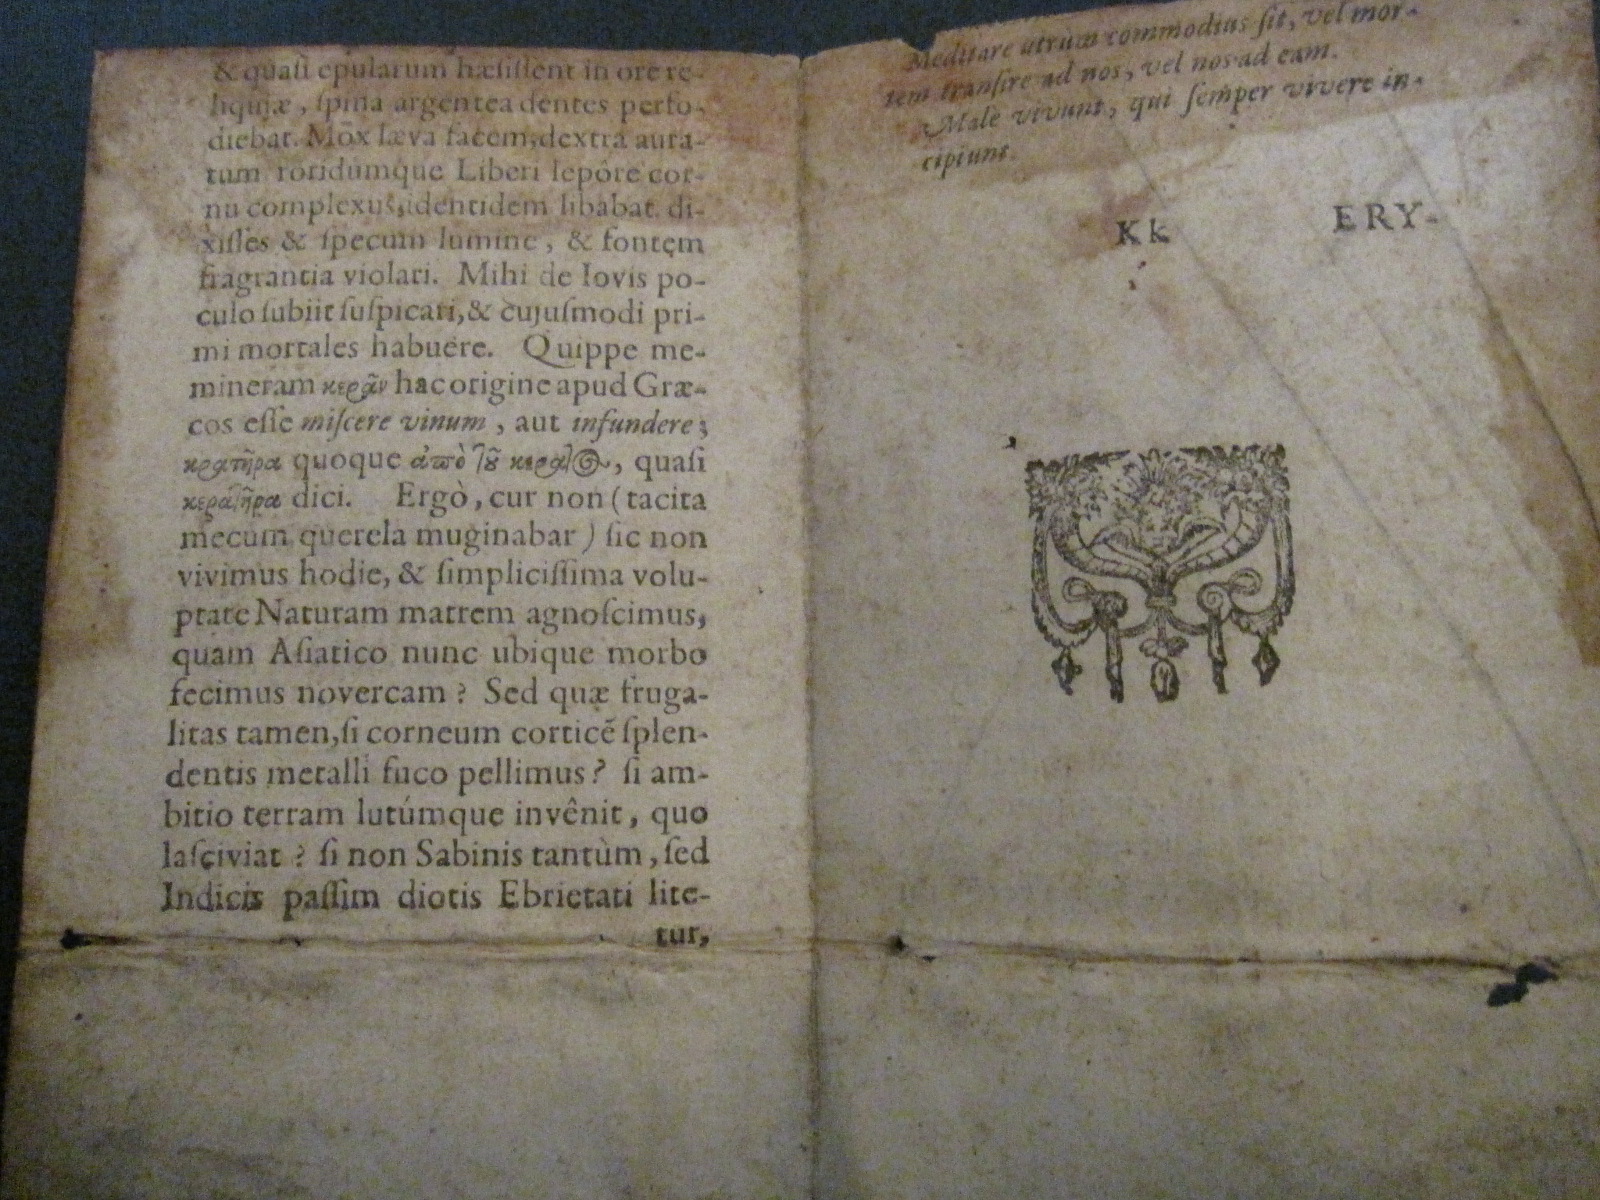 & quaſi epularum hæſiſſent in ore re-
liquiæ, ſpina argentea dentes perfo-
diebat. Mox læva facem, dextra aura-
tum roridumque Liberi lepôre cor-
nu complexus, identidem libabat. di-
xiſſes & ſpecum lumine, & fontem
fragrantia violari. Mihi de Iovis po-
culo ſubiit ſuſpicari, & cujuſmodi pri-
mi mortales habuêre. Quippe me-
mineram κερᾶν hac origine apud Græ-
cos eſſe miſcere vinum, aut infundere;
κρατῆρα quoque ἀπὸ τοῦ κέρατος, quaſi
κερατῆρα dici. Ergò, cur non (tacita
mecum querela muginabar) ſic non
vivimus hodie, & ſimpliciſſima volu-
ptate Naturam matrem agnoſcimus,
quam Aſiatico nunc ubique morbo
fecimus novercam? Sed quæ fruga-
litas tamen, ſi corneum corticẽ ſplen-
dentis metalli fuco pellimus? ſi am-
bitio terram lutúmque invênit, quo
laſciviat? ſi non Sabinis tantùm, ſed
Indicis paſſim diotis Ebrietati lite-
tur,
Meditare utrùm commodius ſit, vel mor-
tem tranſire ad nos, vel nos ad eam.
Malè vivunt, qui ſemper vivere in-
cipiunt.
Kk ERY-